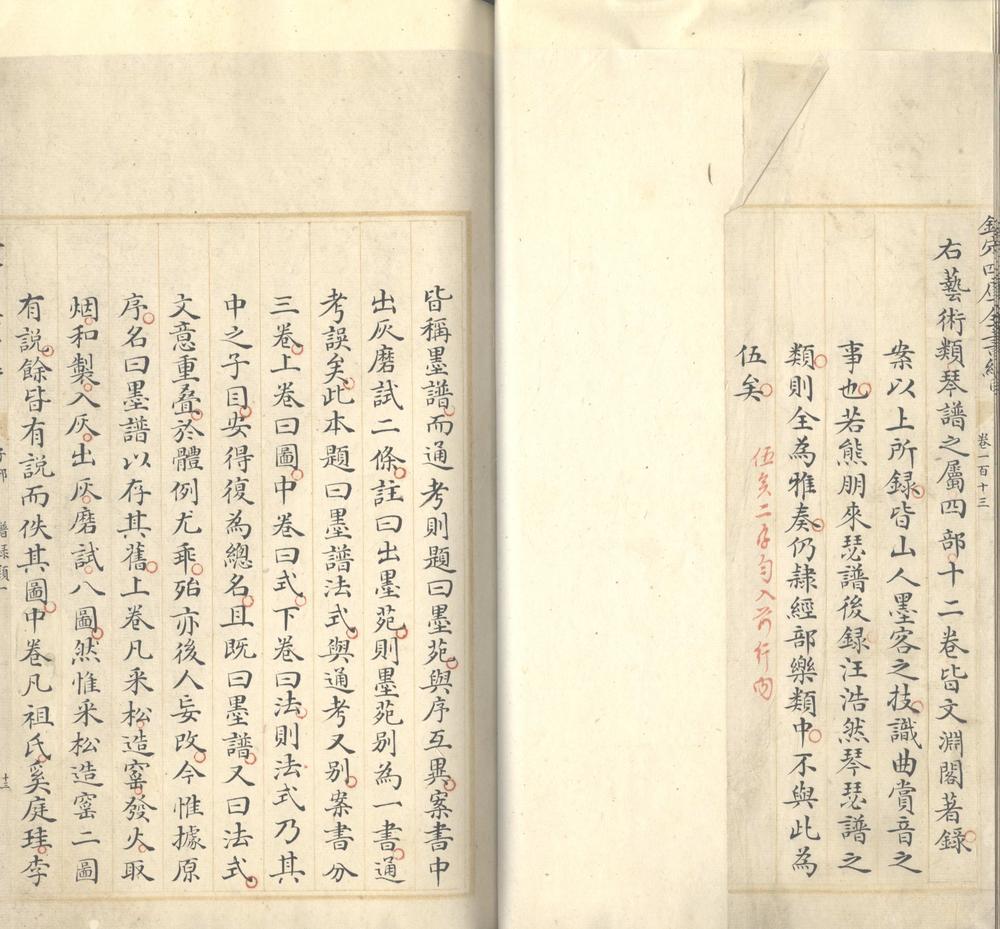 欽定四庫全書總目
卷一百十三
右藝術類琴譜之屬四部十二卷皆文淵閣著錄
案以上所録皆山人墨客之技識曲賞音之
事也若熊朋來瑟譜後録汪浩然琴瑟譜之
類則全為雅奏仍隸經部樂類中不與此為
伍矣
伍矣二字勻入前行內
皆稱墨譜而通考則題曰墨苑與序互異案書中
出灰磨試二條註曰出墨苑則墨苑別為一書通
考誤矣此本題曰墨譜法式與通考又别案書分
三卷上卷曰圖中卷曰式下卷曰法則法式乃其
中之子目安得復為總名且既曰墨譜又曰法式
文意重叠於體例尤乖殆亦後人妄改今惟據原
序名曰墨譜以存其舊上卷凡采松造窰發火取
烟和製入灰出灰磨試八圖然惟采松造窰二圖
有説餘皆有説而佚其圖中卷凡祖氏奚庭珪李
譜錄類一
十三